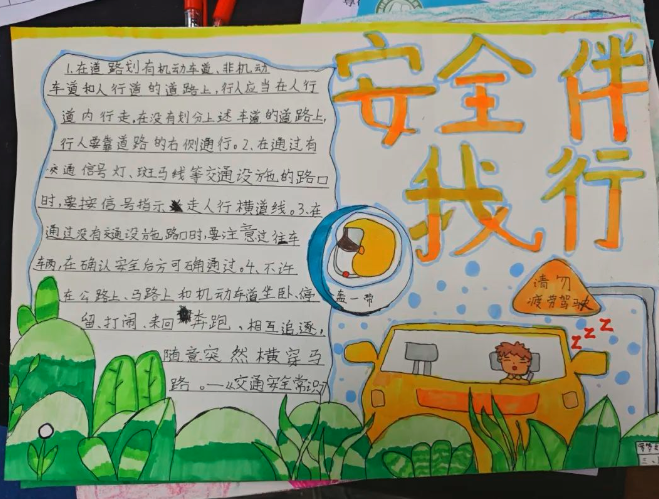 安全伴
我行
1.在道路划有机动车道、非机动
车道和人行道的道路上,行人应当在人行
道内行走,在没有划分上述车道的道路上,
行人要靠道路的右侧通行。2.在通过有
交通信号灯、斑马线等交通设施的路口
时,要按信号指示走人行横道线。3.在
通过没有交通设施路口时,要注意过往车
车辆,在确认安全后方可确通过。4.不许
在公路上、马路上和机动车道坐卧、停
留、打闹、来回奔跑、相互追逐,
随意突然横穿马
路。——《交通安全常识》
盔一带
请勿
疲劳驾驶
z z z